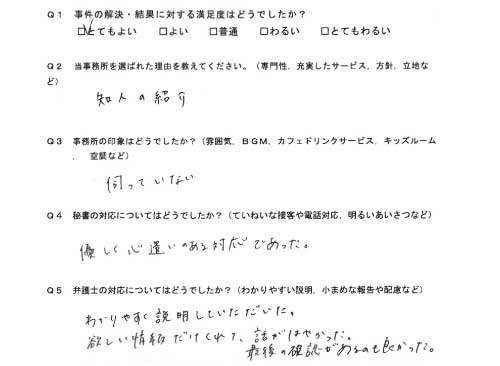 Q1 事件の解決・結果に対する満足度はどうでしたか?
☑とてもよい □よい □普通 □わるい □とてもわるい
Q2 当事務所を選ばれた理由を教えてください。(専門性、充実したサービス、方針、立地な
ど)
知人の紹介
Q3 事務所の印象はどうでしたか?(雰囲気、BGM、カフェドリンクサービス、キッズルーム
、 空間など)
伺っていない
Q4 秘書の対応についてはどうでしたか?(ていねいな接客や電話対応、明るいあいさつなど)
優しく心遣いのある対応であった。
Q5 弁護士の対応についてはどうでしたか?(わかりやすい説明、小まめな報告や配慮など)
わかりやすく説明していただいた。
欲しい情報だけくれて、話がはやかった。
最後の確認があるのも良かった。